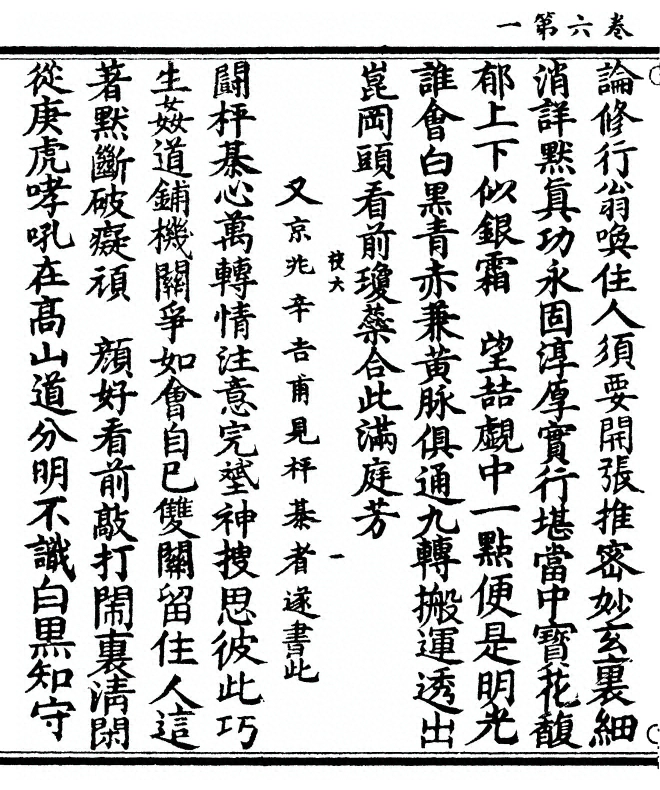 卷六第一
論修行翁喚住人須要開張推密妙玄裏細
消詳默真功永固淳厚實行堪當中寶花馥
郁上下似銀霜　望喆覷中一點便是明光
誰會白黑青赤兼黃脉俱通九轉搬運透出
崑岡頭看前瓊蘂合此滿庭芳
又京兆辛吉甫見枰棊者遂書此
枝大
一
鬪枰棊心萬轉情注意完 神搜思彼此巧
生姦道鋪機關爭如會自巳雙關留住人這
著默斷破癡頑　顔好看前敲打鬧裏清閑
從庚虎哮吼在高山道分明不識白黑知守